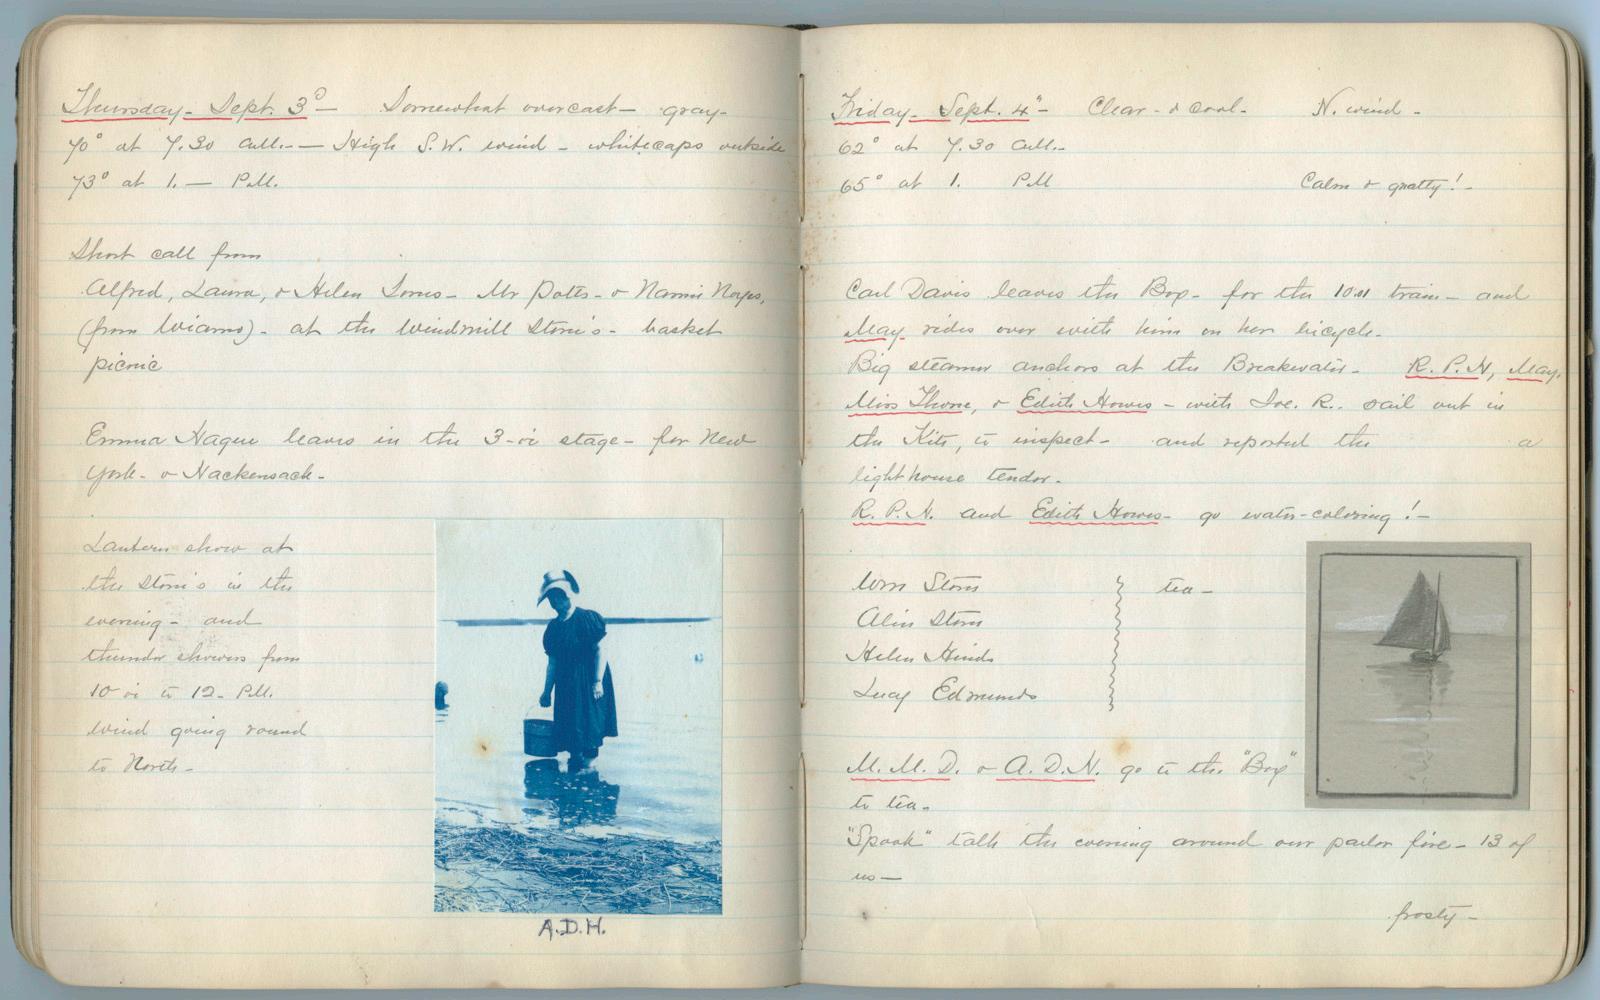 Thursday - Sept. 3º - Somewhat overcast - gray -
70° at 7.30 A.M. - High S.W. wind - whitecaps outside
73° at 1. - P.M.
Short call from
Alfred, Laura, & Helen - Mr Potts - &
(from Wianno) - at the Windmill Storm's - basket
picnic
Emma Hague leaves in the 3-oc stage - for New
York - & Hackensack -
Lantern show at
the Storm's in the
evening - and
thunder showers from
10 oc to 12 - P.M.
wind going round
to North -
A.D.H.
Friday - Sept. 4" - Clear - & cool - N. wind -
62° at 7.30 A.M. -
65° at 1. P.M Calm & gnatty! -
Carl Davis leaves the Box - for the train - and
May rides over with him on her bicycle -
Big steamer anchors at the Breakwater - R.P.H, May,
Miss Thorne, & Edith Howes - with Joe. R.. sail out in
the Kite, to inspect - and reported the a
lighthouse tender -
R.P.H. and Edith Howes - go water-coloring! -
Wm Storm tea -
Alice Storm
Helen Hinds
Lucy Edmunds
M.M.D. & A.D.H. go to the "Box"
to tea -
"Spook" talk the evening around our parlor fire - 13 of
us -
frosty -